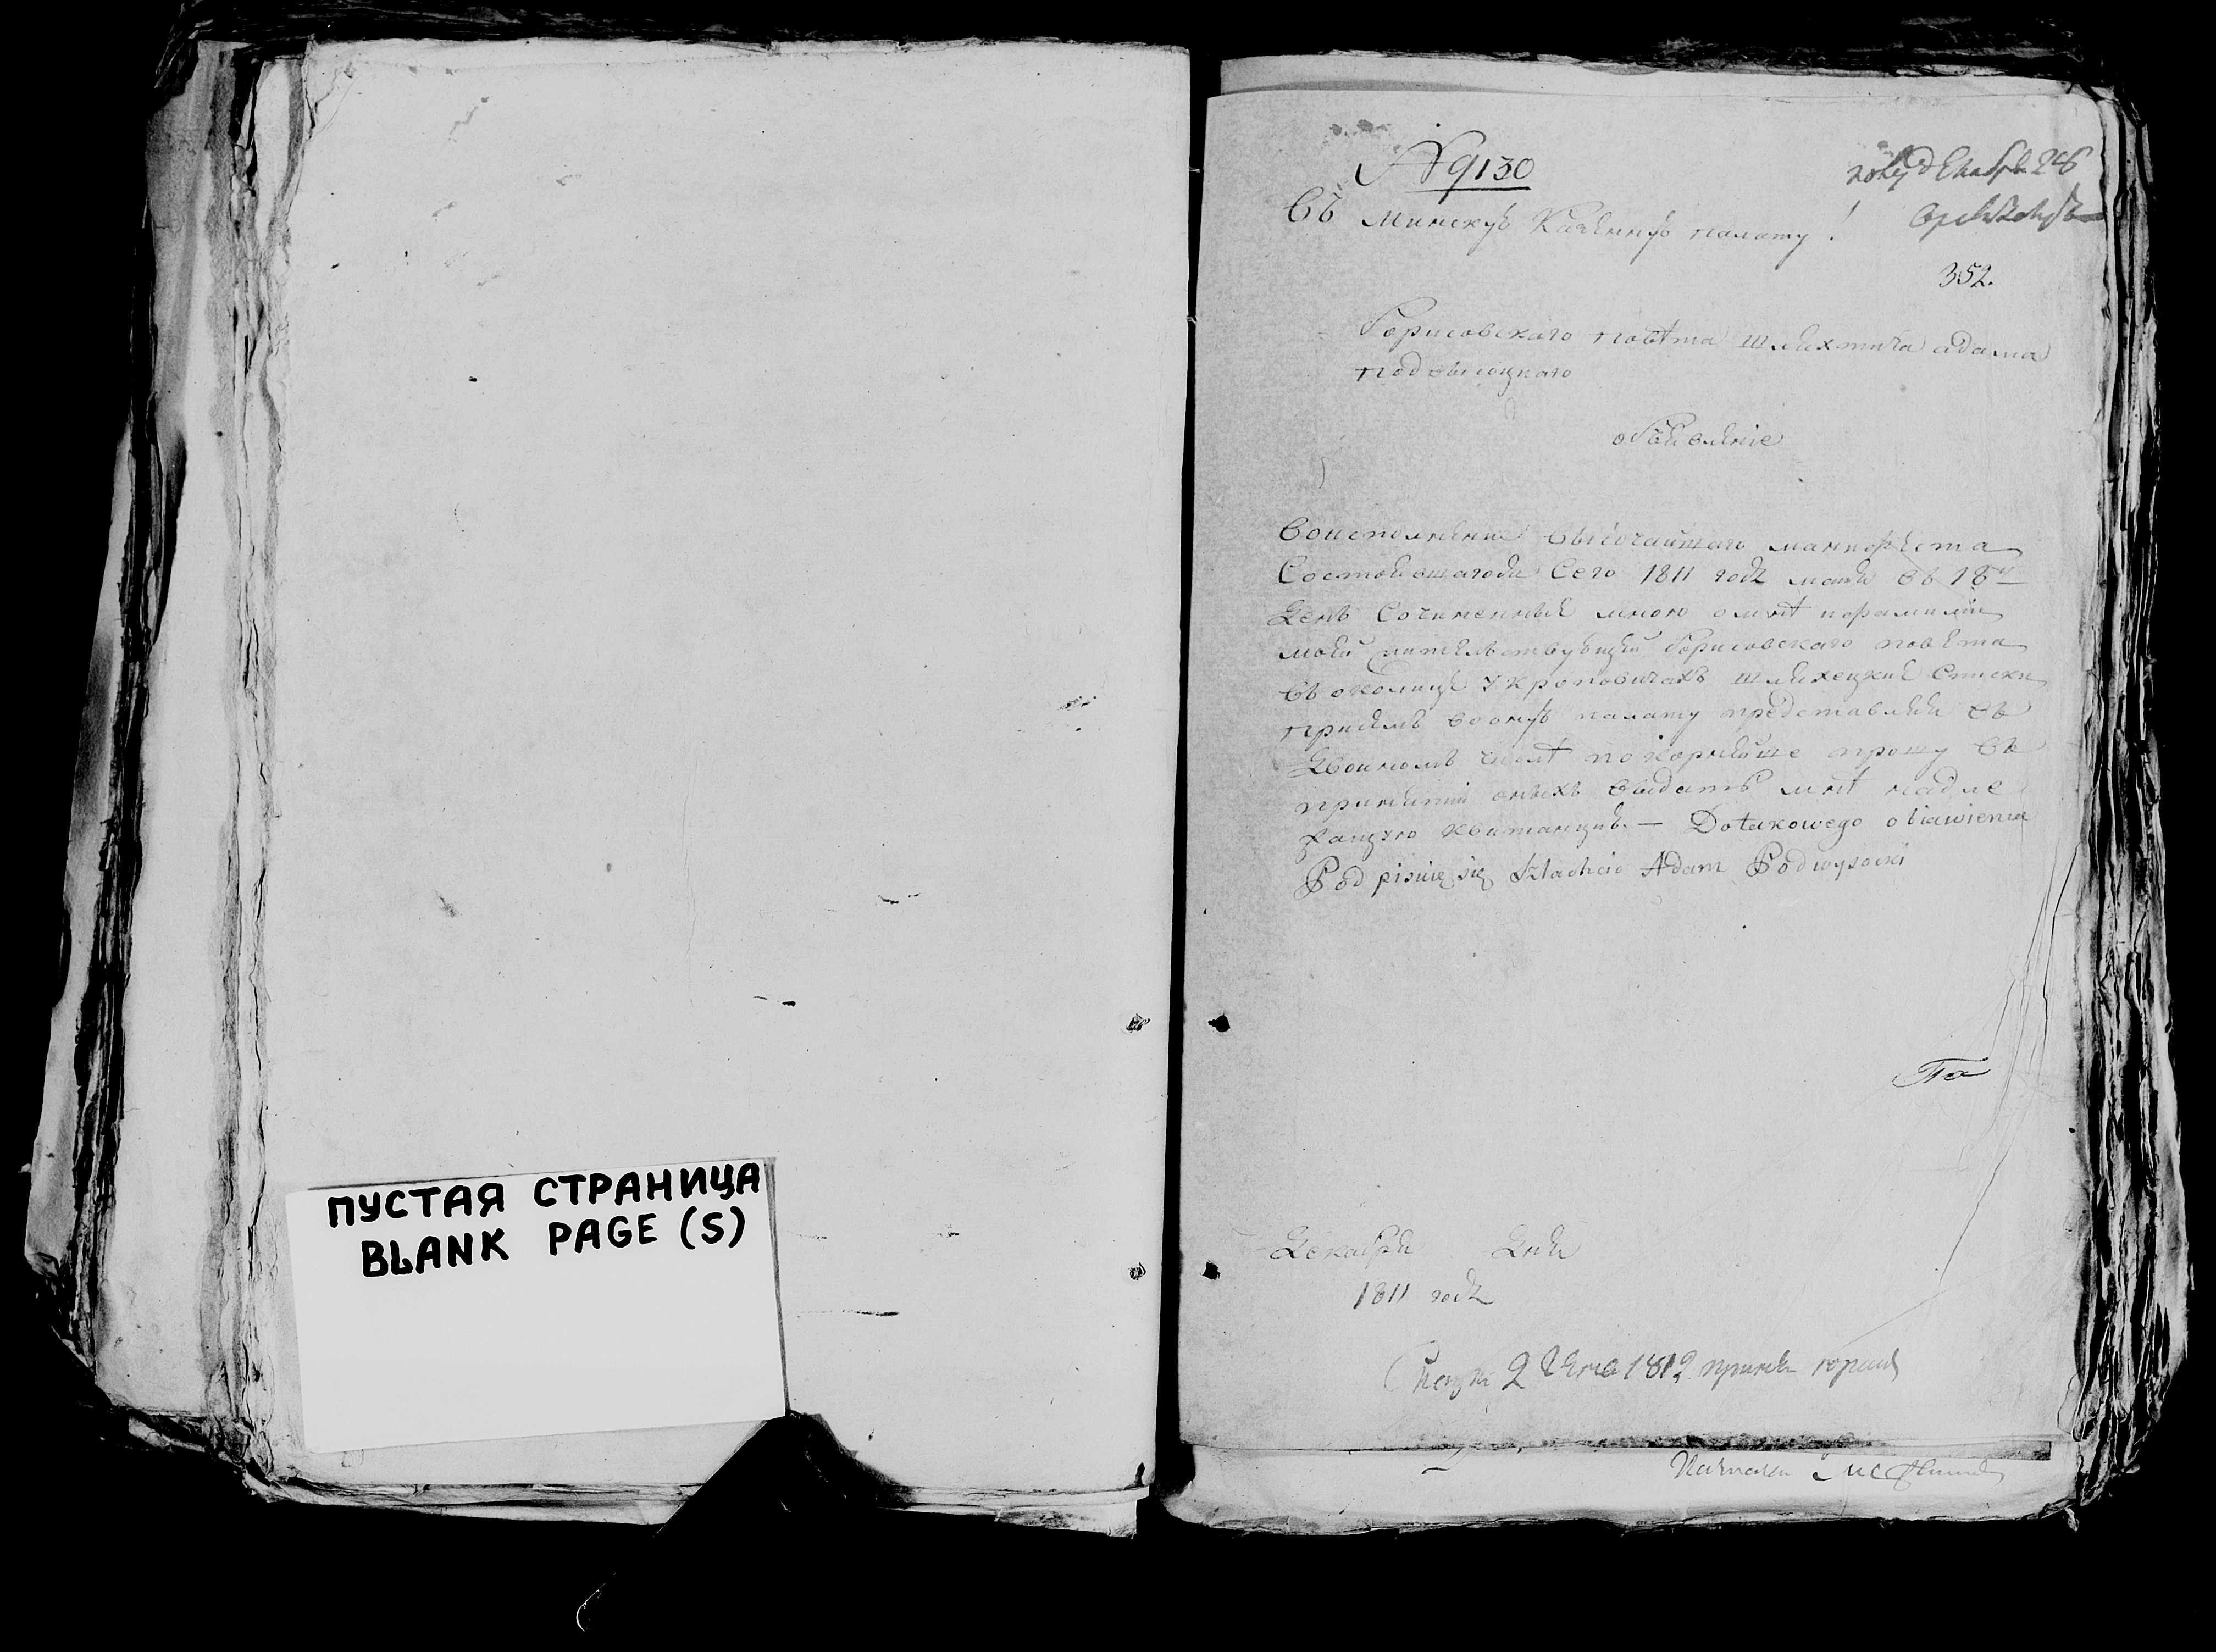 ПУСТАЯ СТРАНИЦА
BLANK PAGE (S)
№ 9130
Въ Минскую Казенную палату!
352.
Борисовскаго повѣта шляхтича адама
подвысоцкаго
объявленіе
Воисполнение высочаишаго манифеста
Состоявшагося Сего 1811 года мая въ 18й
День Сочиненные мною омнѣ ифамилии
моей жительствующей Борисовскаго повета
въ околице Укроповичахъ шляхецкие Списки
присемъ воону палату представляя въ
Двоиномъ числѣ покорнейше прошу въ
принятии оныхъ выдать мнѣ надле
жащую квитанцию. — Dotakowego obiawienia
Podpisuię się Szlachcic Adam Podwysocki
Декабря Дня
1811 года
2 1812